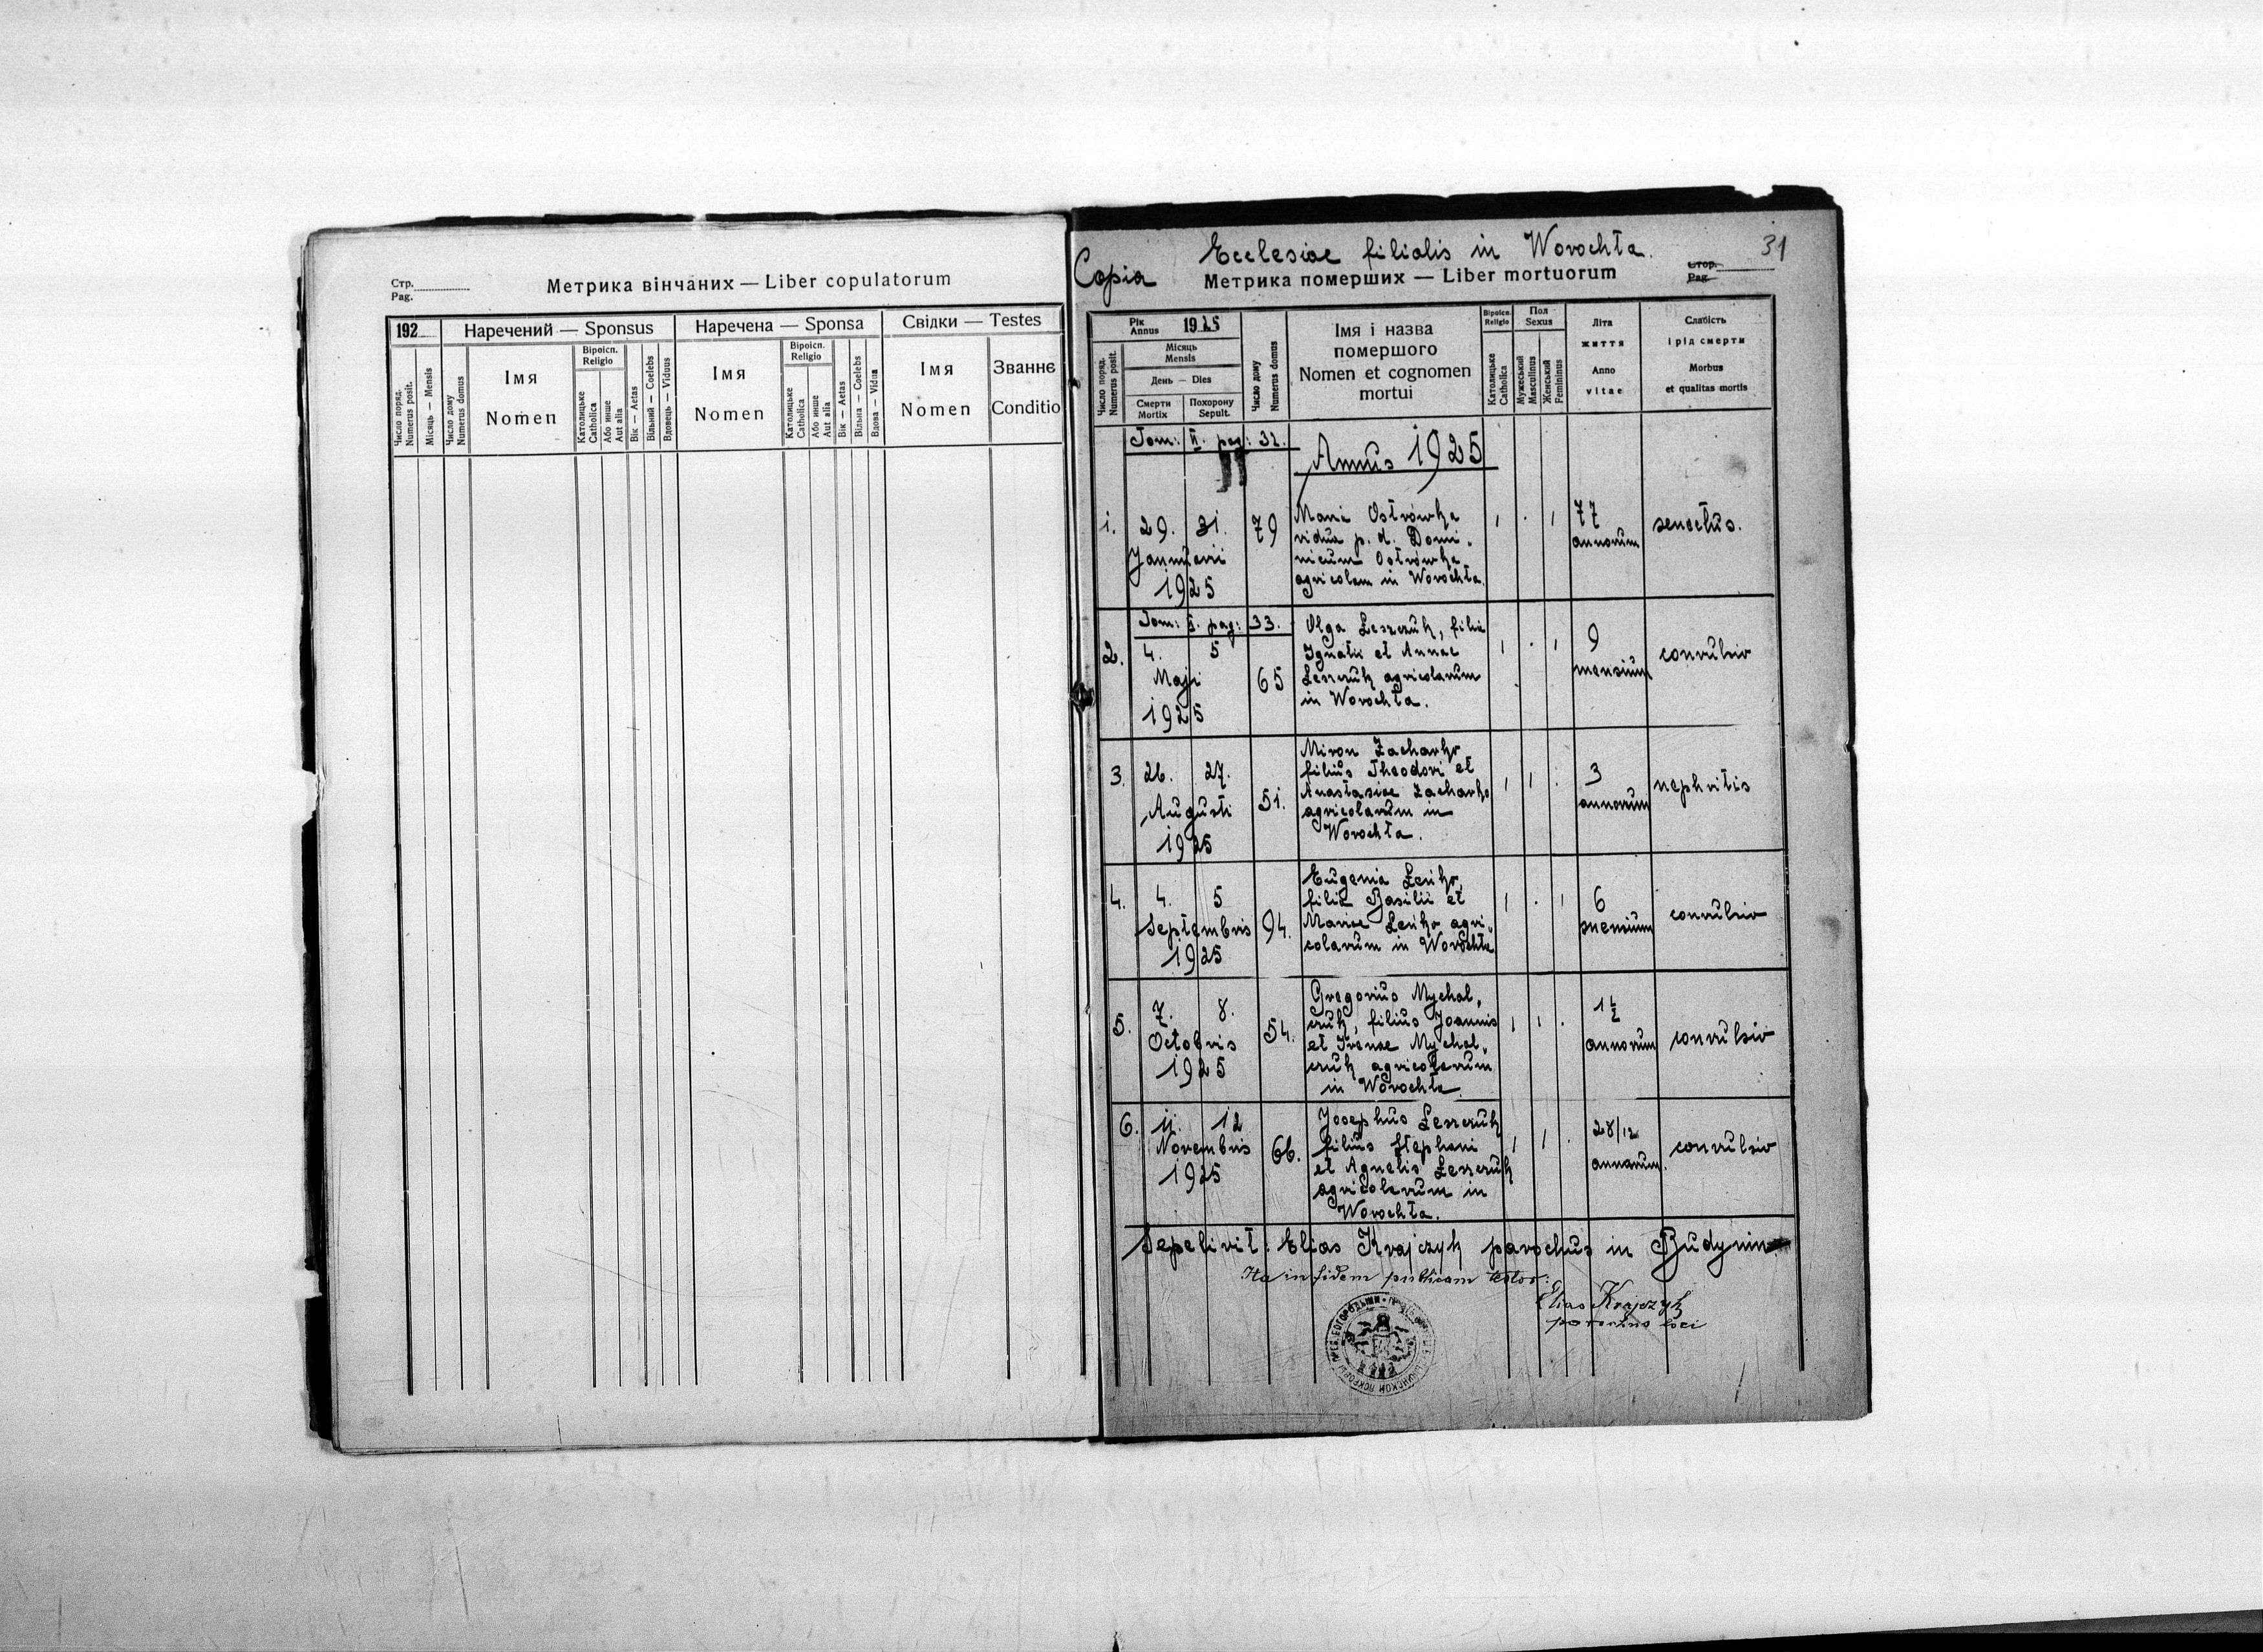 Стр.
Pag.
Метрика вінчаних — Liber copulatorum
192
Наречений — Sponsus
Наречена — Sponsa
Свідки — Testes
Число поряд.
Numerus posit.
Місяць — Mensis
Число дому
Numerus domus
Імя
Nomen
Віроісп.
Religio
Католицьке
Catholica
Або инше
Aut alia
Вік — Aetas
Вільний — Coelebs
Вдовець — Viduus
Імя
Nomen
Віроісп.
Religio
Католицьке
Catholica
Або инше
Aut alia
Вік — Aetas
Вільна — Coelebs
Вдова — Vidua
Імя
Nomen
Званнє
Conditio
Ecclesiae filialis in Worochta.
31
Copia
Метрика померших — Liber mortuorum
Стор.
Pag.
Число поряд.
Numerus posit.
Рік
Annus
1925
Місяць
Mensis
День — Dies
Смерти
Mortix
Похорону
Sepult.
Число дому
Numerus domus
Імя і назва
помершого
Nomen et cognomen
mortui
Віроісп.
Religio
Католицьке
Catholica
Пол
Sexus
Мужеський
Masculinus
Женський
Femininus
Літа
життя
Anno
vitae
Слабість
і рід смерти
Morbus
et qualitas mortis
Tom: II. pag: 32.
Annus 1925
1.
29. 31.
Januarii
1925
79
Maria Ostrówka
vidua p. d. Domi-
nicum Ostrówka
agricolam in Worochta.
77
annorum
senectus.
Tom: II. pag: 33.
2.
4. 5
Maji
1925
65
Olga Leszczuk, filia
Ignatii et Annae
Leszczuk agricolarum
in Worochta.
9
mensium
convulsio
3.
26. 27.
Augusti
1925
51.
Miron Zacharko
filius Theodori et
Anastasiae Zacharko
agricolarum in
Worochta.
3
annorum
nephritis
4.
4. 5
Septembris
1925
94.
Eugenia Leńko,
filia Basilii et
Mariae Leńko agri-
colarum in Worochta
6
mensium
convulsio
5.
7. 8.
Octobris
1925
54.
Gregorius Mychal-
czuk, filius Joannis
et Irenae Mychal-
czuk agricolarum
in Worochta.
1 1/2
annorum
convulsio
6.
11. 12
Novembris
1925
66.
Josephus Leszczuk
filius Stephani
et Agnetis Leszczuk
agricolarum in
Worochta.
2 8/12
annorum.
convulsio
Sepelivit: Elias Krajczyk parochus in Budynin
Ita in fidem publicam testor:
Elias Krajczyk
parochus loci